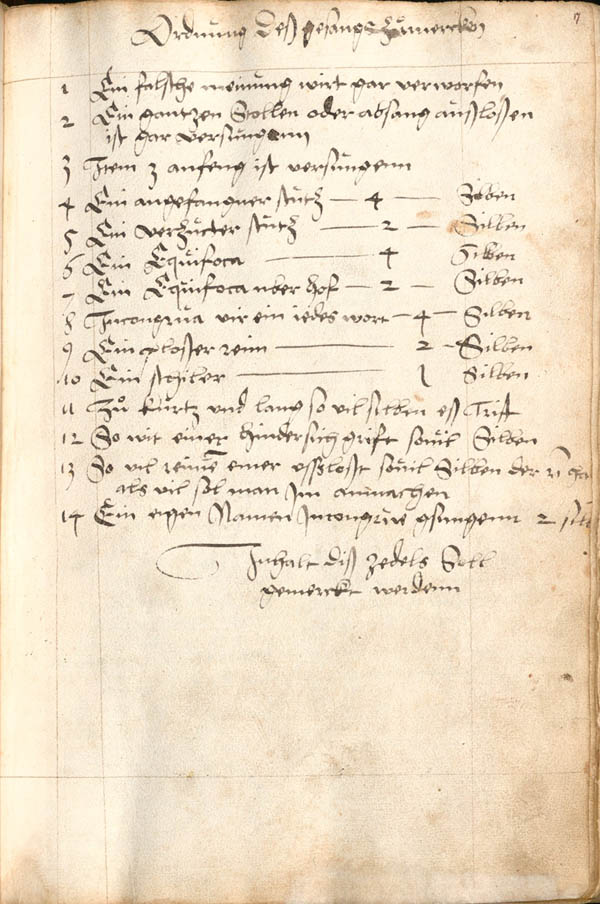 7
Ordnung deß gesangs Zumercken
1 Ein falsche meinung wirt gar verworfen
2 Ein gantzen Stollen oder absang außloßen
ist gar versungenn
3 Item 3 anfeng ist versungenn
4 Ein angefangner stutz — 4 — Silben
5 Ein verzuckter stutz — 2 — Silben
6 Ein Equifoca — 4 Silben
7 Ein Equifoca uber hof — 2 — Silben
8 Incongrua vir ein iedes wort — 4 — Silben
9 Ein ploßer reim — 2 — Silben
10 Ein schiler — 1 Silben
11 Zů kurtz und lang so vil silben eß Trift
12 So wit einer hindersich grift souil Silben
13 So vil reimē einer ußloßt souil Silben der
als vil sol man Im anmachen
14 Ein eigen Namen Incongrue gsungenn 2 silb
Inhalt diß Zedels Soll
gemerckt werdenn